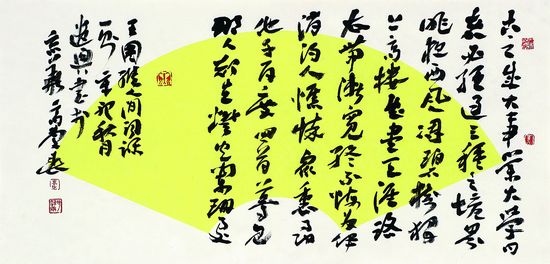 古今成大事業大學問
者必經過三種之境界
昨夜西風凋碧樹獨
上高樓望盡天涯路
衣帶漸寬終不悔為伊
消得人憔悴眾里尋
他千百度回首驀見
那人却在燈火闌珊處
王國維人間詞話
一則辛卯秋月
遣興書於